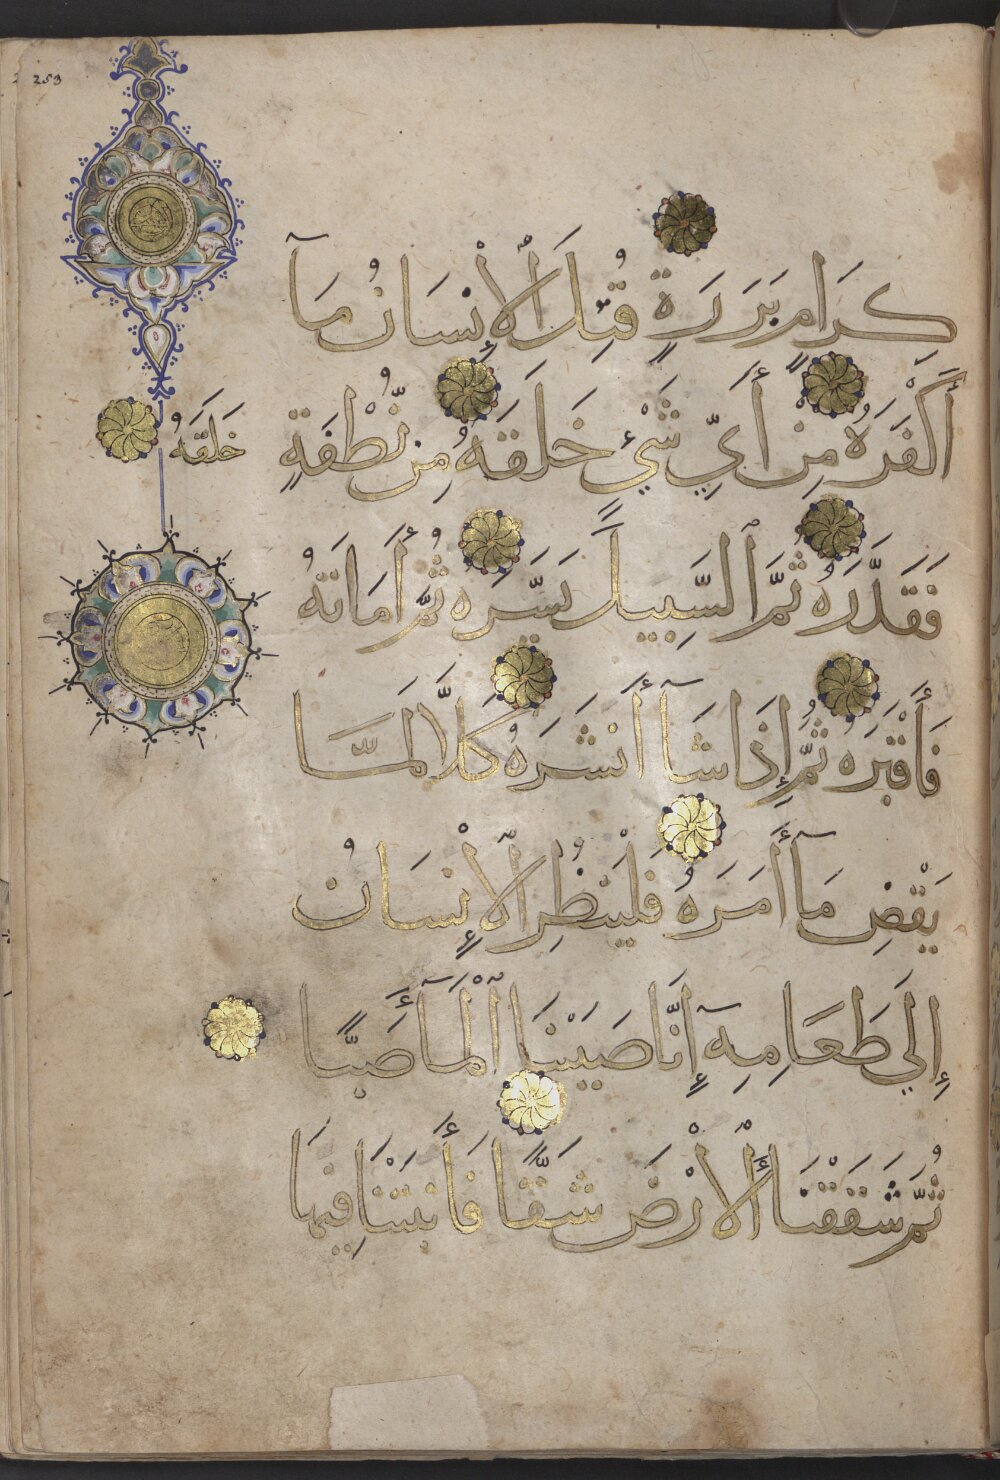 253
كِرَامٍ بَرَرَةٍ قُتِلَ الْإِنْسَانُ مَآ
أَكْفَرَهُ مِنْ أَيِّ شَيْءٍ خَلَقَهُ مِنْ نُّطْفَةٍ
خَلَقَهُ
فَقَدَّرَهُ ثُمَّ السَّبِيلَ يَسَّرَهُ ثُمَّ أَمَاتَهُ
فَأَقْبَرَهُ ثُمَّ إِذَا شَآ أَنْشَرَهُ كَلَّا لَمَّا
يَقْضِ مَآ أَمَرَهُ فَلْيَنْظُرِ الْإِنْسَانُ
إِلَى طَعَامِهِ إِنَّا صَبَبْنَا الْمَآءَ صَبًّا
ثُمَّ شَقَقْنَا الْأَرْضَ شَقًّا فَأَنْبَتْنَا فِيهَا